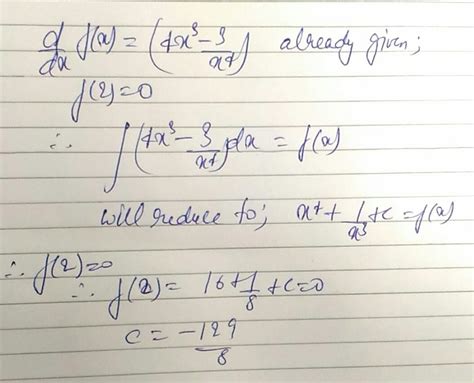 d/dx f(x) = (4x³ - 3/x⁴) already given;
f(2)=0
∴ ∫(4x³ - 3/x⁴)dx = f(x)
will reduce to; x⁴ + 1/x³ + c = f(x)
∴ f(2)=0
∴ f(2) = 16 + 1/8 + c = 0
c = -129/8